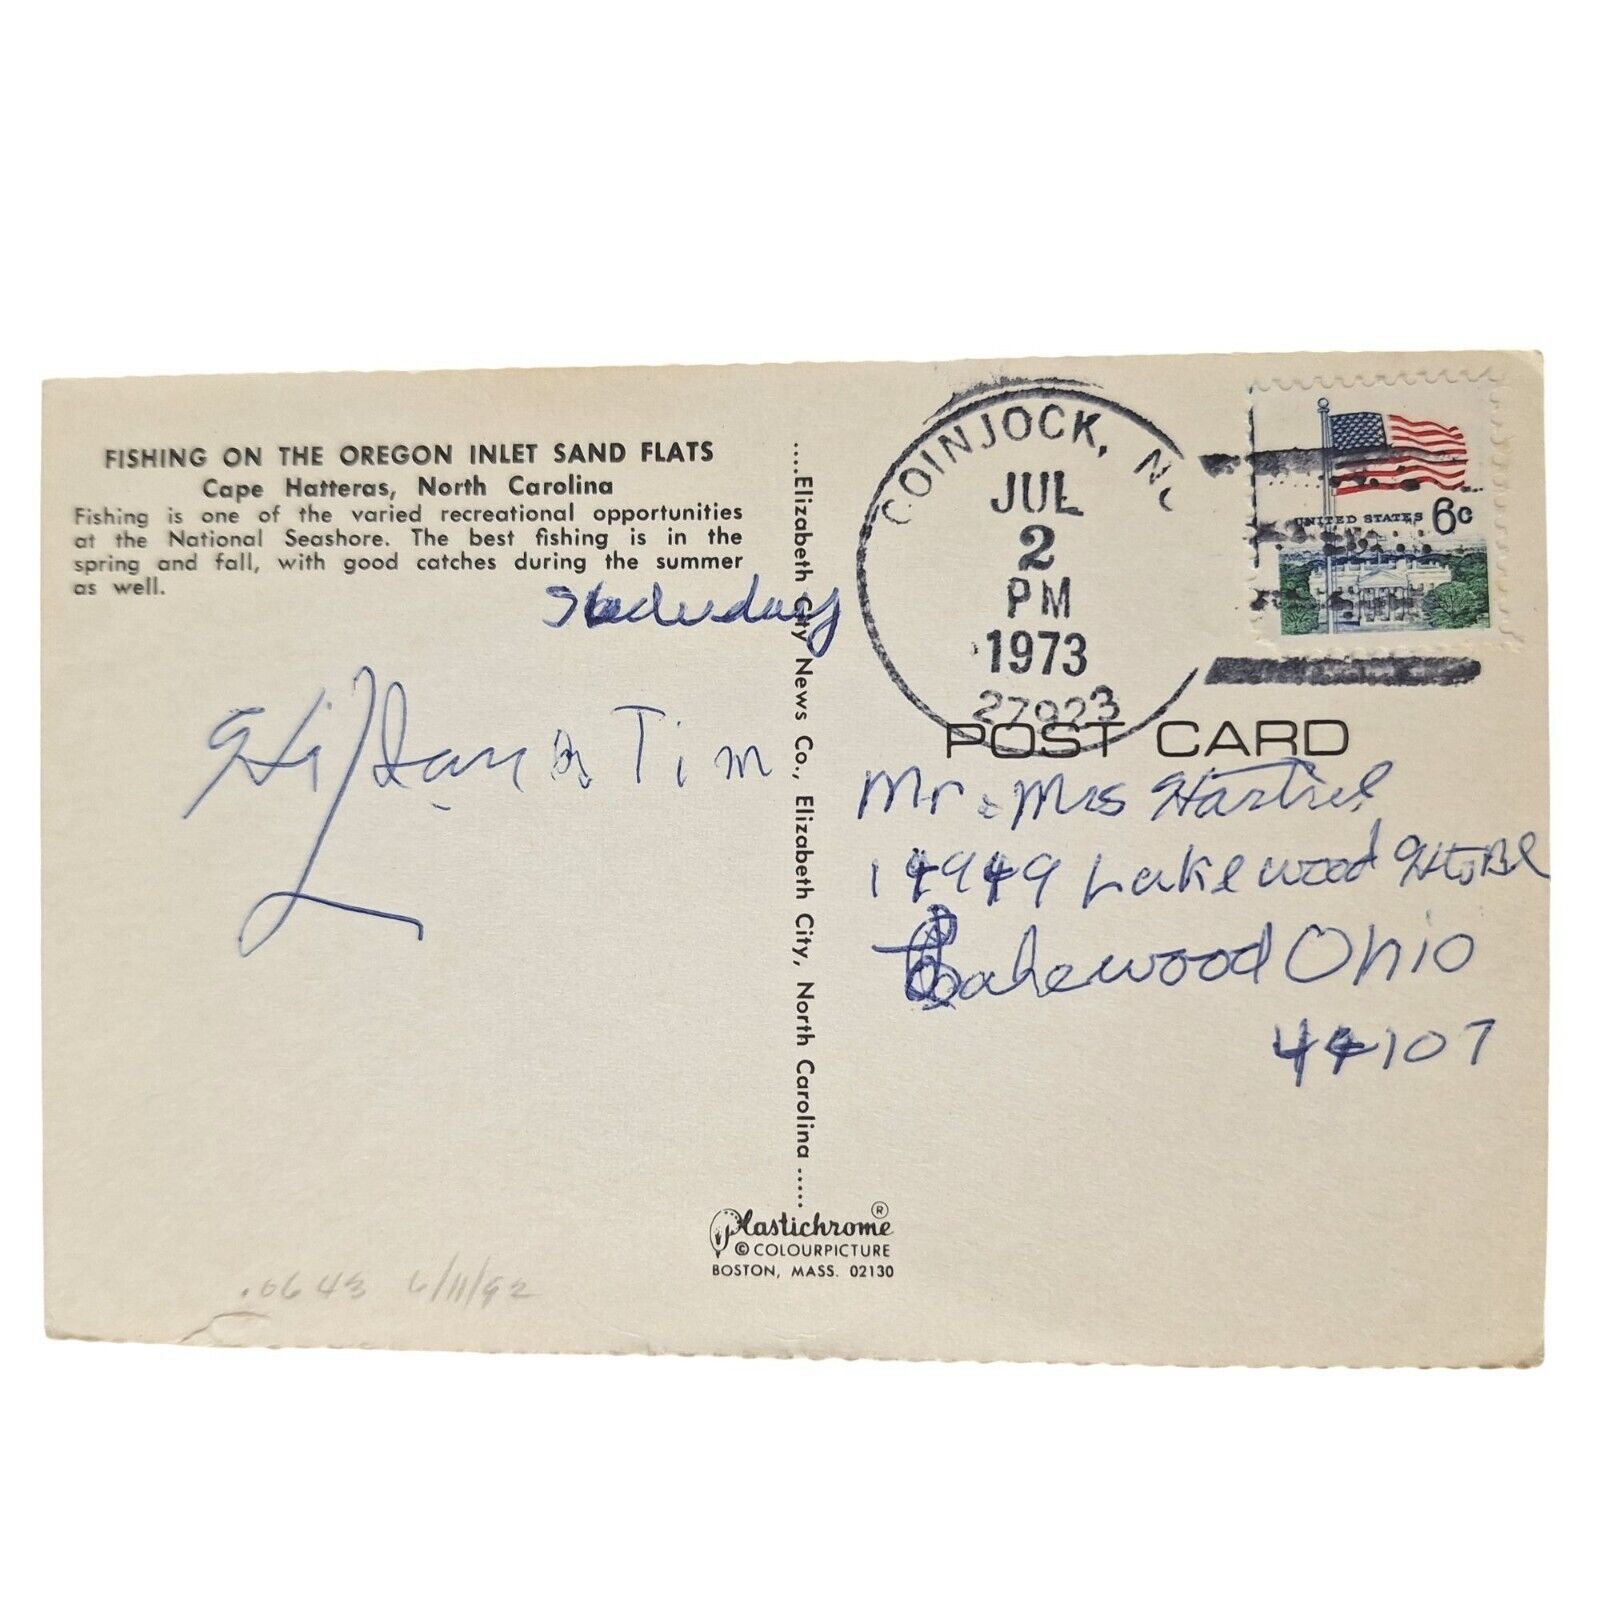 FISHING ON THE OREGON INLET SAND FLATS
Cape Hatteras, North Carolina
Fishing is one of the varied recreational opportunities
at the National Seashore. The best fishing is in the
spring and fall, with good catches during the summer
as well.
Hi
& Tim
....Elizabeth City News Co., Elizabeth City, North Carolina .....
Plastichrome ®
© COLOURPICTURE
BOSTON, MASS. 02130
.0643 6/11/92
COINJOCK, NC
JUL
2
PM
1973
27923
UNITED STATES 6c
POST CARD
Mr & Mrs
14949 Lakewood Hts Bl
Lakewood Ohio
44107